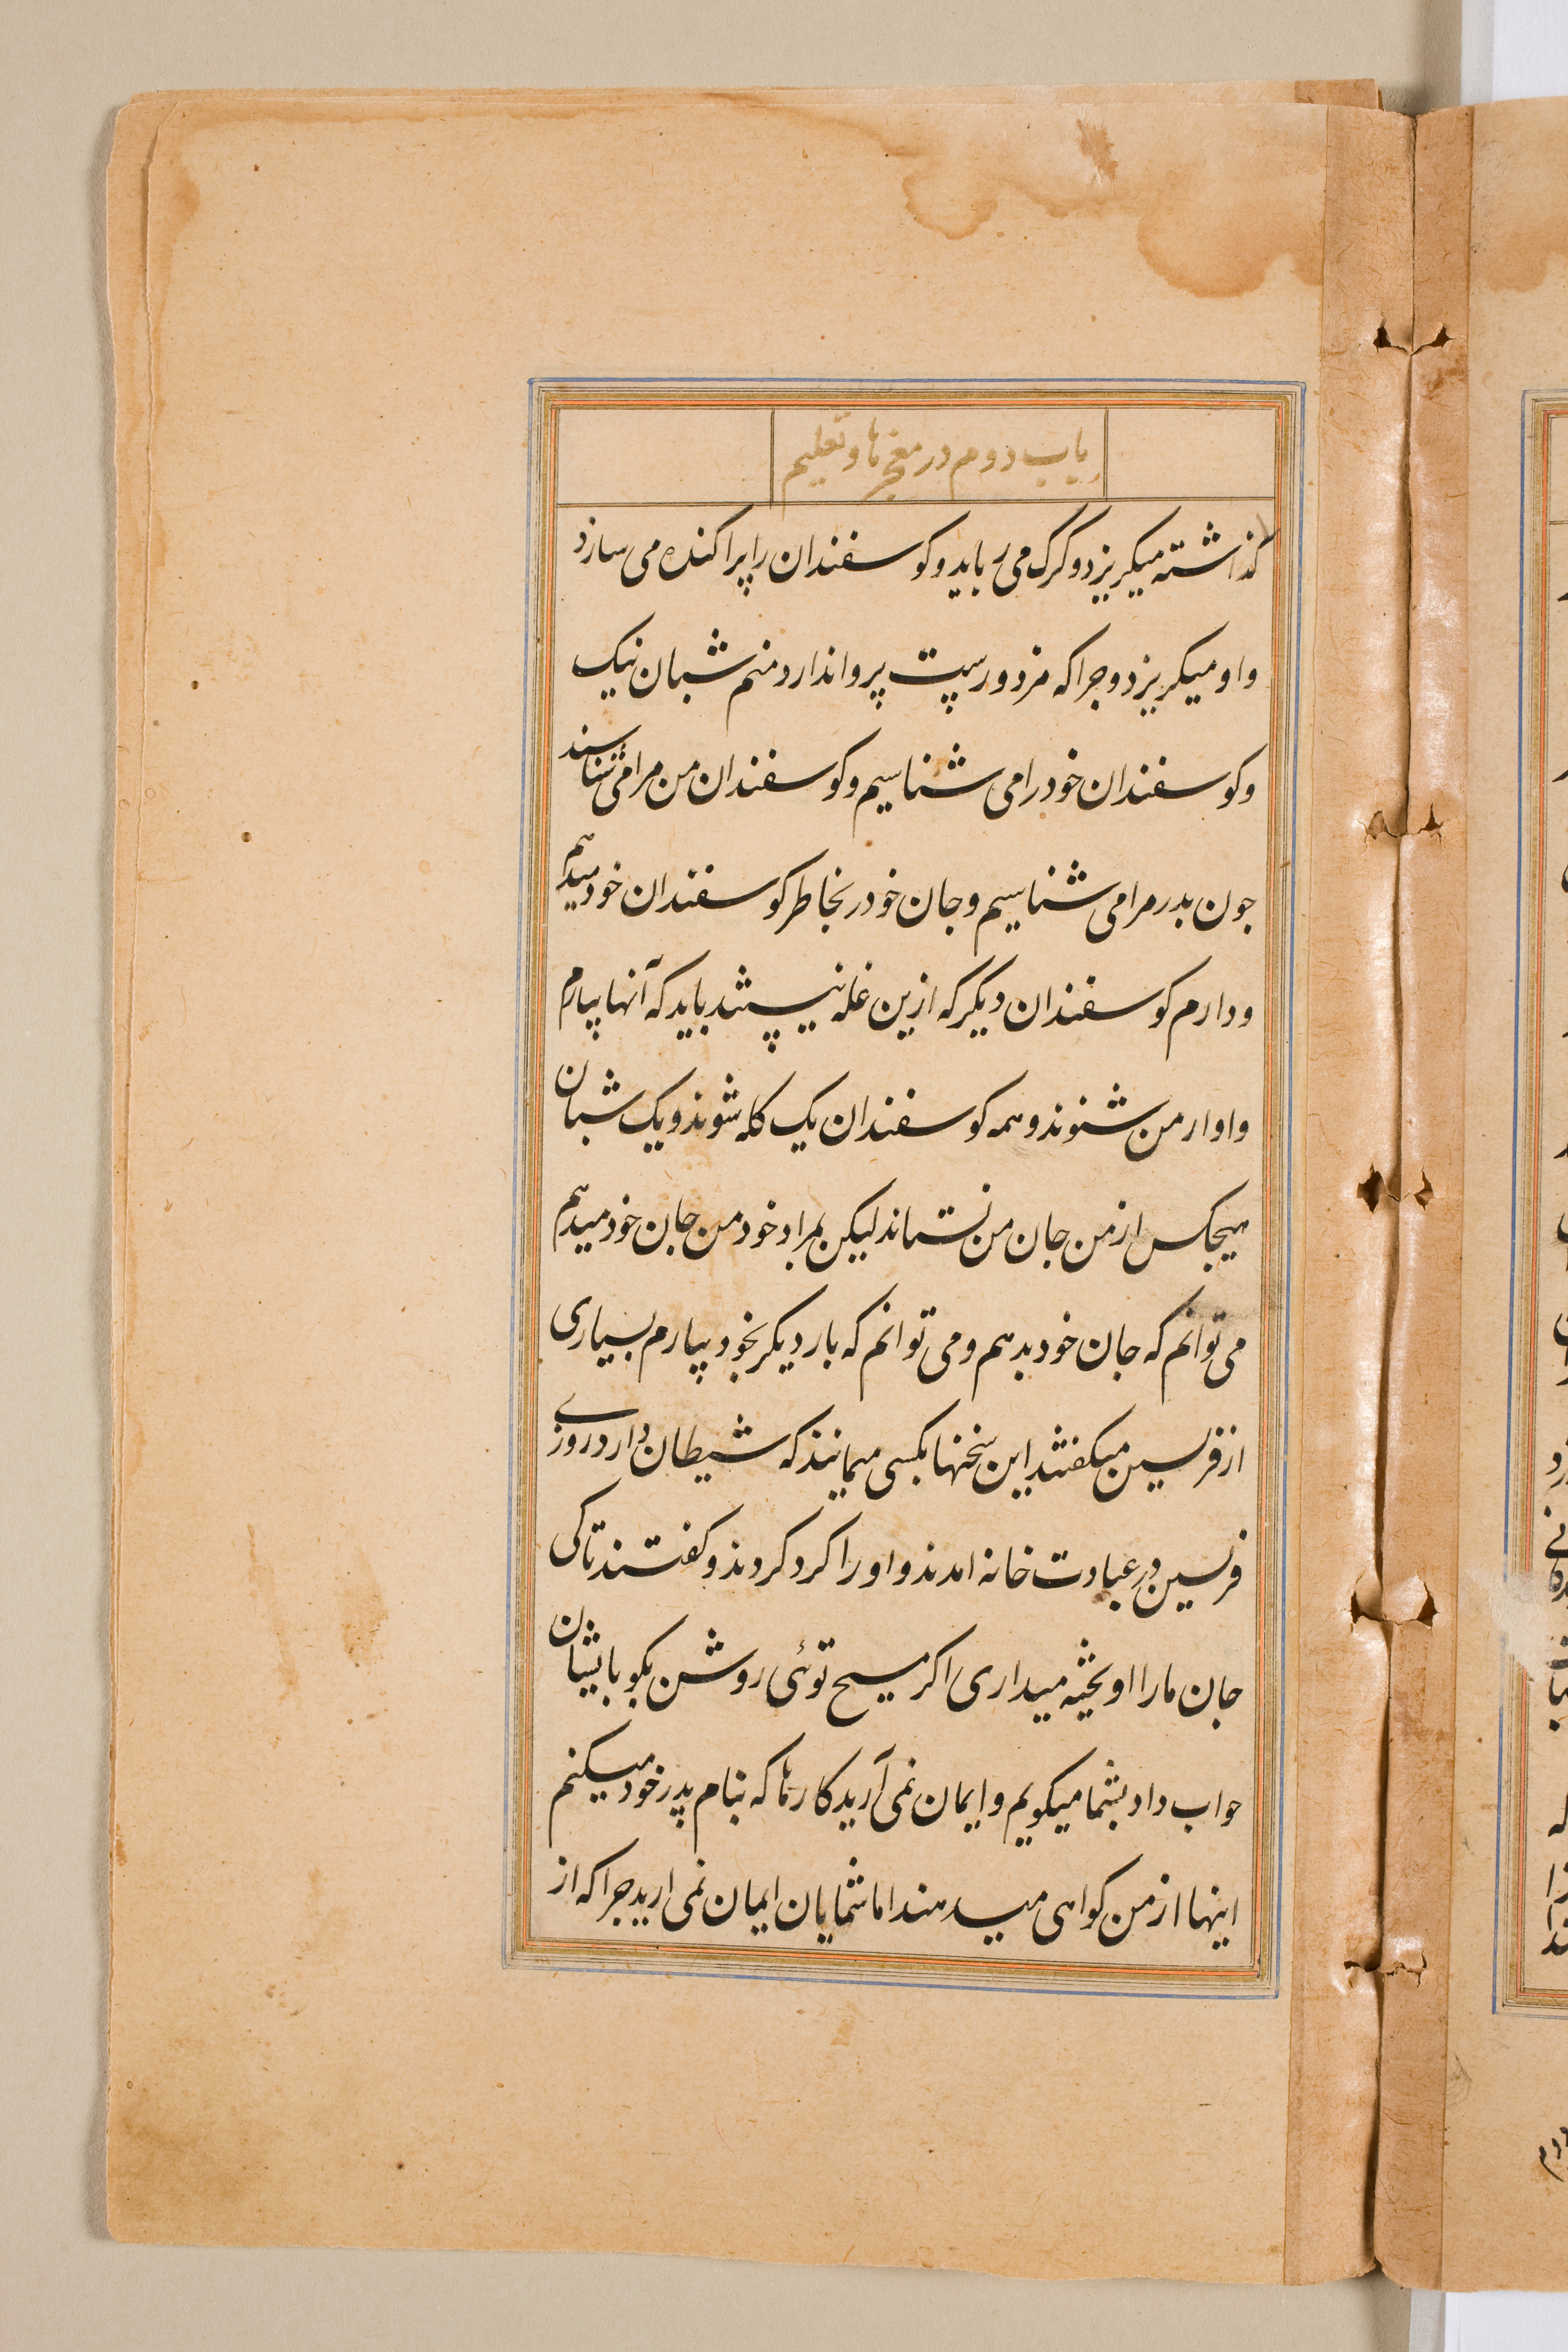 باب دوم در معجزها و تعلیم
کذاشته میکریزد و کرک می رباید و کوسفندان را پراکنده می سازد
و او میکریزد و جرا که مزدورست پروا ندارد منم شبان نیک
و کوسفندان خود را می شناسیم و کوسفندان من مرا می شناسند
جون بدر مرا می شناسیم و جان خود بخاطر کوسفندان خود میدهم
و دارم کوسفندان دیکر که ازین غله نیستند باید که آنها بیارم
و اواز من شنوند و همه کوسفندان یک کله شوند و یک شبان
هیجکس از من جان من نستاند لیکن بمراد خود من جان خود میدهم
می توانم که جان خود بدهم و می توانم که بار دیکر بخود بیارم بسیاری
از فرسین میکفتند این سخنها بکسی میمانند که شیطان دارد روزی
فرسین در عبادت خانه امدند و او را کرد کردند و کفتند تا کی
جان ما را اویخته میداری اکر مسیح توئی روشن بکو با ایشان
جواب داد بشما میکویم و ایمان نمی آرید کارها که بنام پدر خود میکنم
اینها از من کواهی میدهند اما شمایان ایمان نمی ارید جرا که از